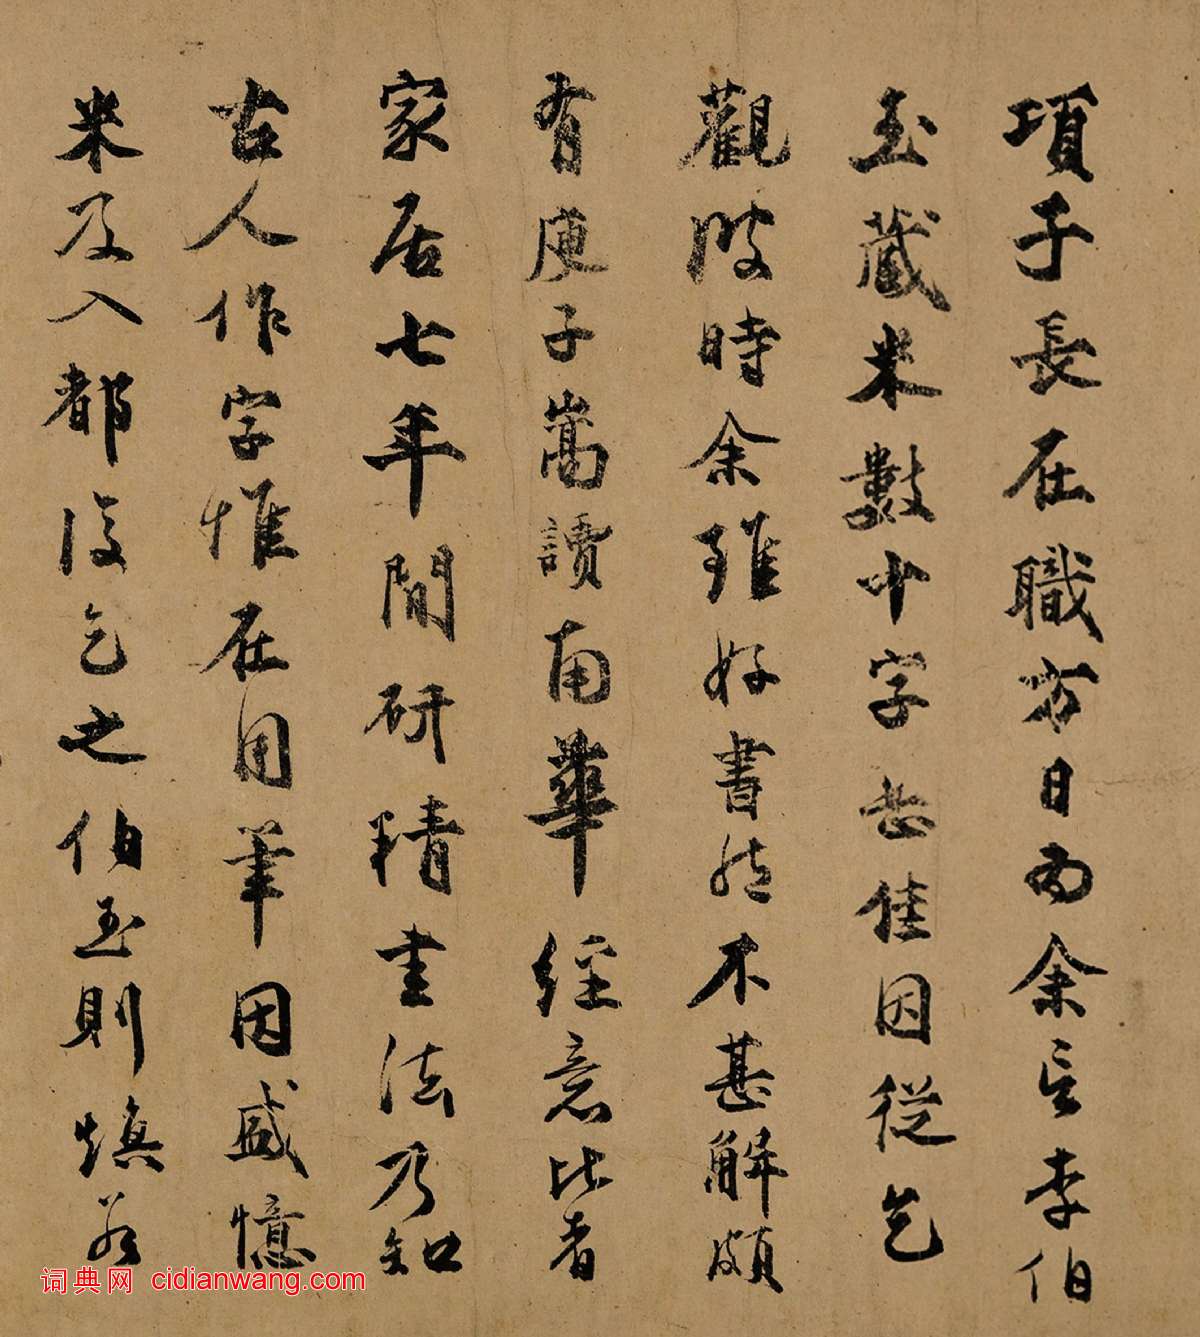 項子長在職方日為余言李伯
玉藏米數十字甚佳因從乞
觀歧時余雖好書然不甚解頗
有庾子嵩讀南華經意比者
家居七年間研精書法乃知
古人作字惟在用筆因盛憶
米及入都復乞之伯玉則慎
詞典网 cidianwang.com